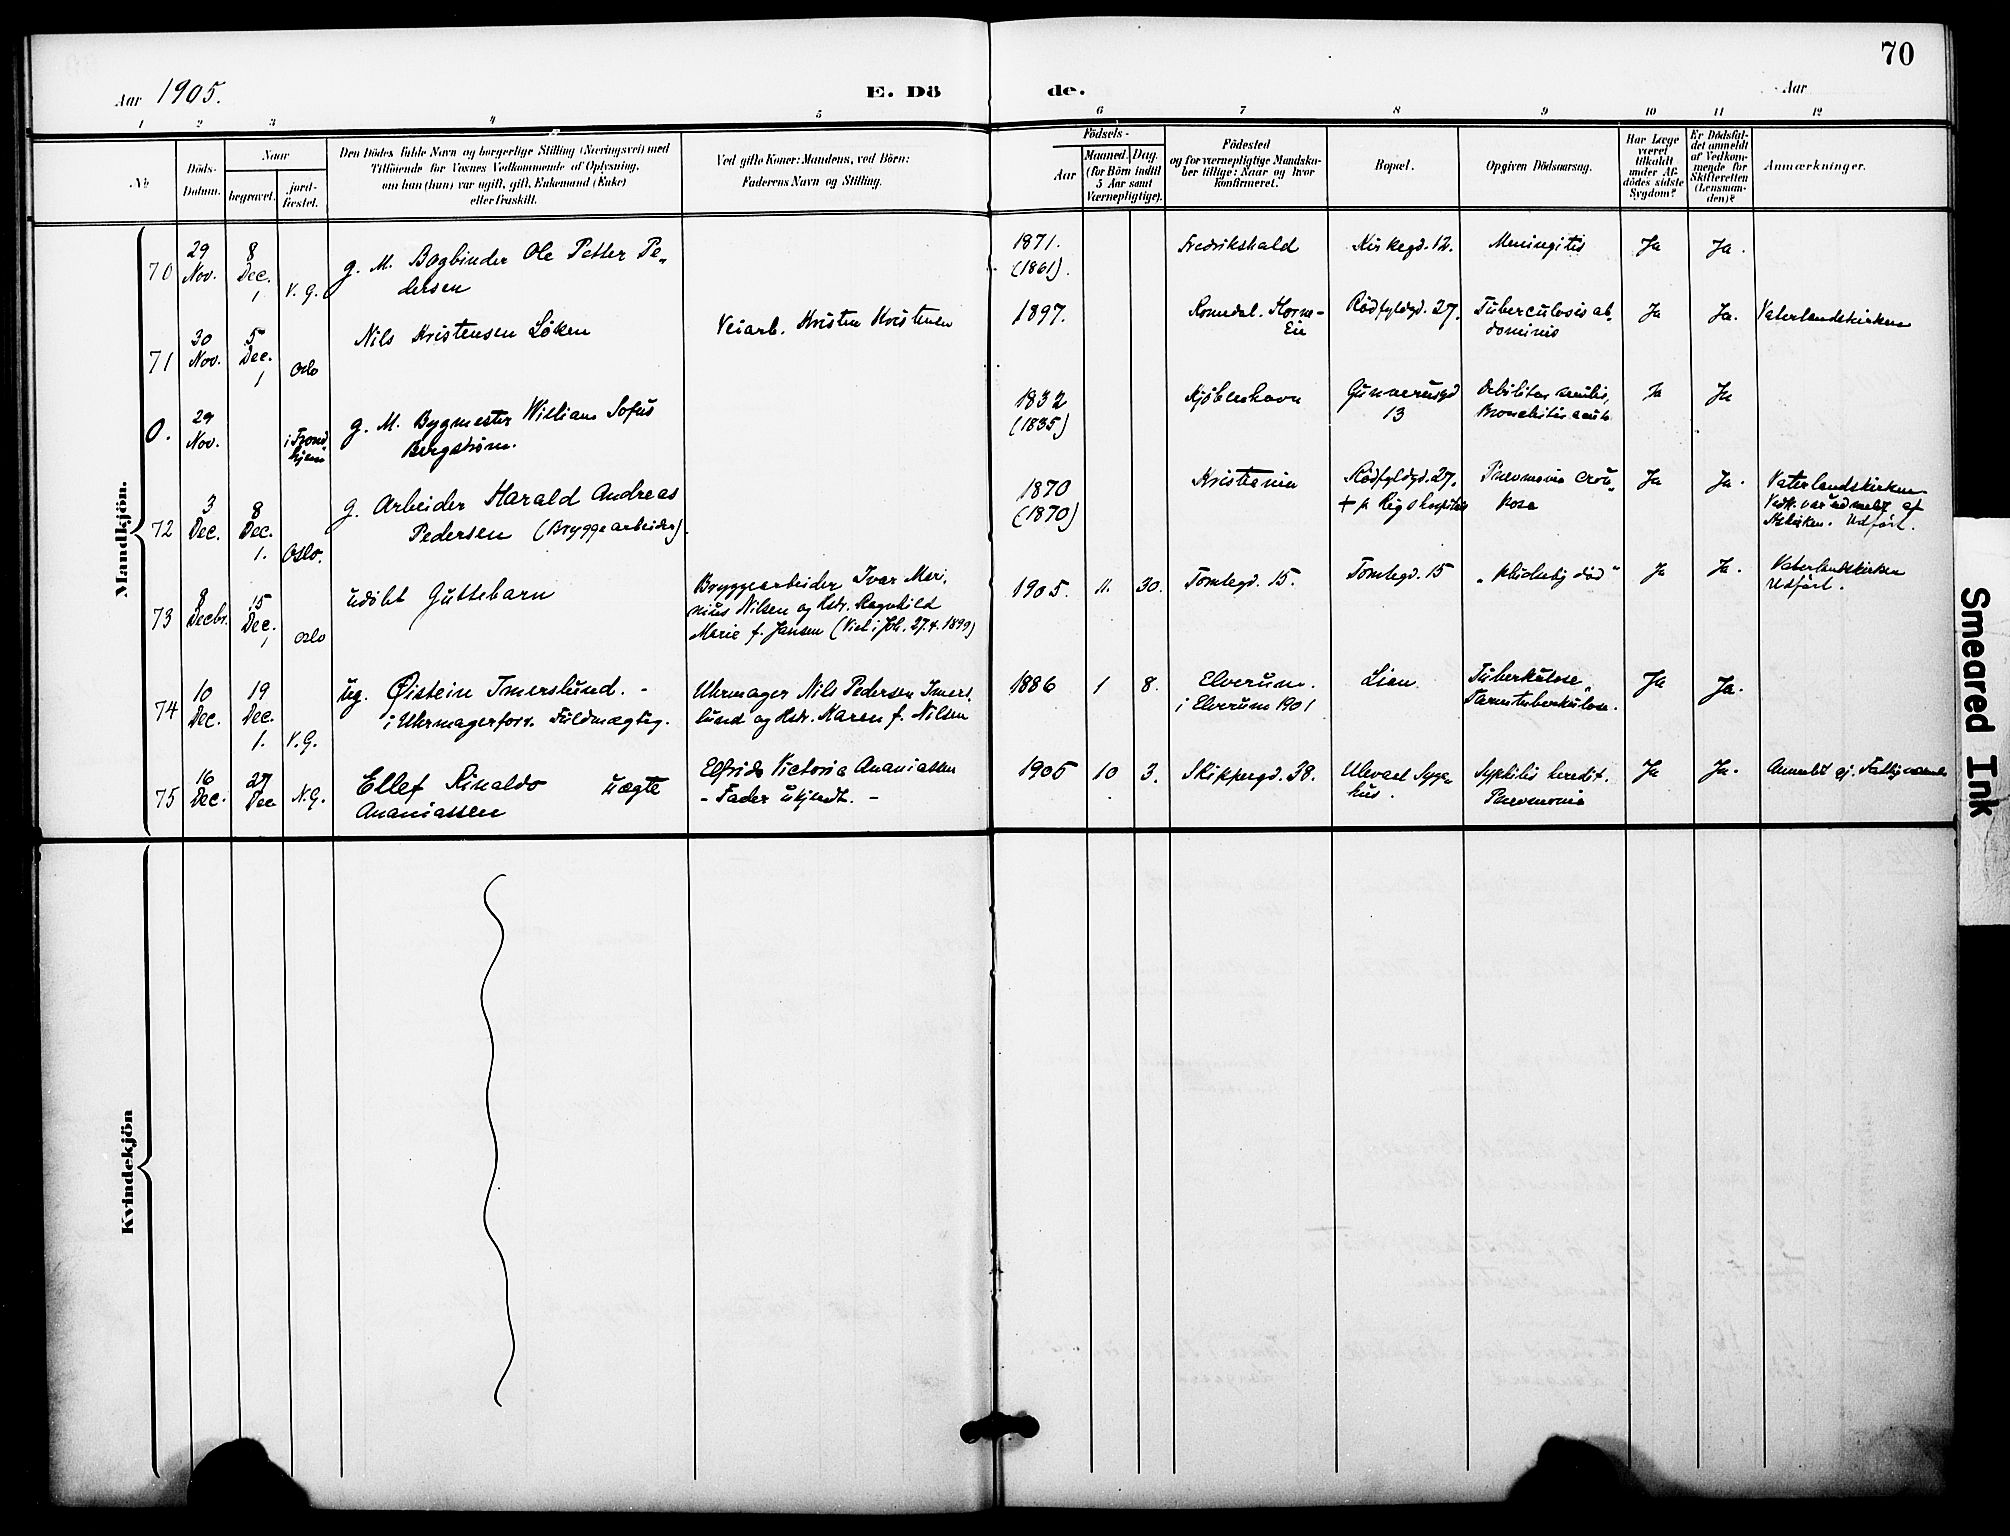 70
Aar 1905.
E. Dö
de.
Aar
1 2 3 4 5 6 7 8 9 10 11 12
No
Döds-
Datum.
Naar
begravet.
jord-
fæstet.
Den Dödes fulde Navn og borgerlige Stilling (Næringsvei) med
Tilföiende for Voxnes Vedkommende af Oplysning,
om han (hun) var ugift, gift, Enkemand (Enke)
eller fraskilt.
Ved gifte Koner: Mandens, ved Börn:
Faderens Navn og Stilling.
Födsels-
Aar
Maaned. Dag.
(for Börn indtil
5 Aar samt
Værnepligtige).
Födested
og for værnepligtige Mandska-
ber tillige: Naar og hvor
konfirmeret.
Bopæl.
Opgiven Dödsaarsag.
Har Læge
været
tilkaldt
under Af-
dödes sidste
Sygdom?
Er Dödsfal-
det anmeldt
af Vedkom-
mende for
Skifteretten
(Lensman-
den)?
Anmærkninger.
Mandkjön.
70
29
Nov.
8
Dec.
1
V. G.
g. M. Bogbinder Ole Petter Pe-
dersen
1871.
(1861).
Fredrikshald
Kirkegd. 12.
Meningitis
Ja
Ja.
71
30
Nov.
5
Dec.
1
Oslo
Nils Kristensen Løken
Veiarb. Kristen Kristensen
1897.
Romedal. Horne-
Eie
Rødfyldgd. 27.
Tuberculosis ab-
dominis
Ja
Ja.
Vaterlandskirken
0.
29
Nov.
i Trond
hjem
g. M. Bygmester William Sofus
Bergstrøm.
1832
(1835)
Kjøbenhavn
Gunnerusgd
13
Debilitas senilis,
Bronchitis acut.
Ja
Ja
72
3
Dec.
8
Dec.
1.
Oslo.
g. Arbeider Harald Andreas
Pedersen (Bryggearbeider).
1870
(1870)
Kristiania
Rødfyldgd. 27.
+ p Rigshospitalet
Pneumonia crou-
posa
Ja
Ja.
Vaterlandskirken.
Vedk. var udmeldt af
Udført.
73
8
Decbr.
15
Dec.
1
Oslo
udøbt Guttebarn
Bryggearbeider Ivar Mari-
nius Nilsen og Hstr. Ragnhild
Marie f. Jansen (Viel i Joh. 27.4.1899)
1905.
11.
30.
Tomtegd. 15.
Tomtegd. 15
„pludselig død"
Ja
Ja.
Vaterlandskirken
Udført.
74
10
Dec.
19
Dec.
1.
V. G.
ug. Øistein Imerslund. -
i Uhrmagerforr. Fuldmægtig.
Uhrmager Nils Pedersen Imers-
lund og Hstr. Karen f. Nilsen
1886
1
8.
Elverum.
i Elverum 1901
Lian
Tuberkulose,
Tarmtuberkulose.
Ja
Ja.
75
16
Dec.
27
Dec
N. G.
Ellef Rinaldo uægte
Ananiassen
Elfrida Victoria Ananiassen
- Fader ukjendt. -
1905
10
3.
Skippergd. 38.
Ulevaal Syge-
hus.
Syphilis heredit.
Pneumonia
Ja
Ja.
Anmeldt af Fattigvæsenet
Kvindekjön
Smeared Ink